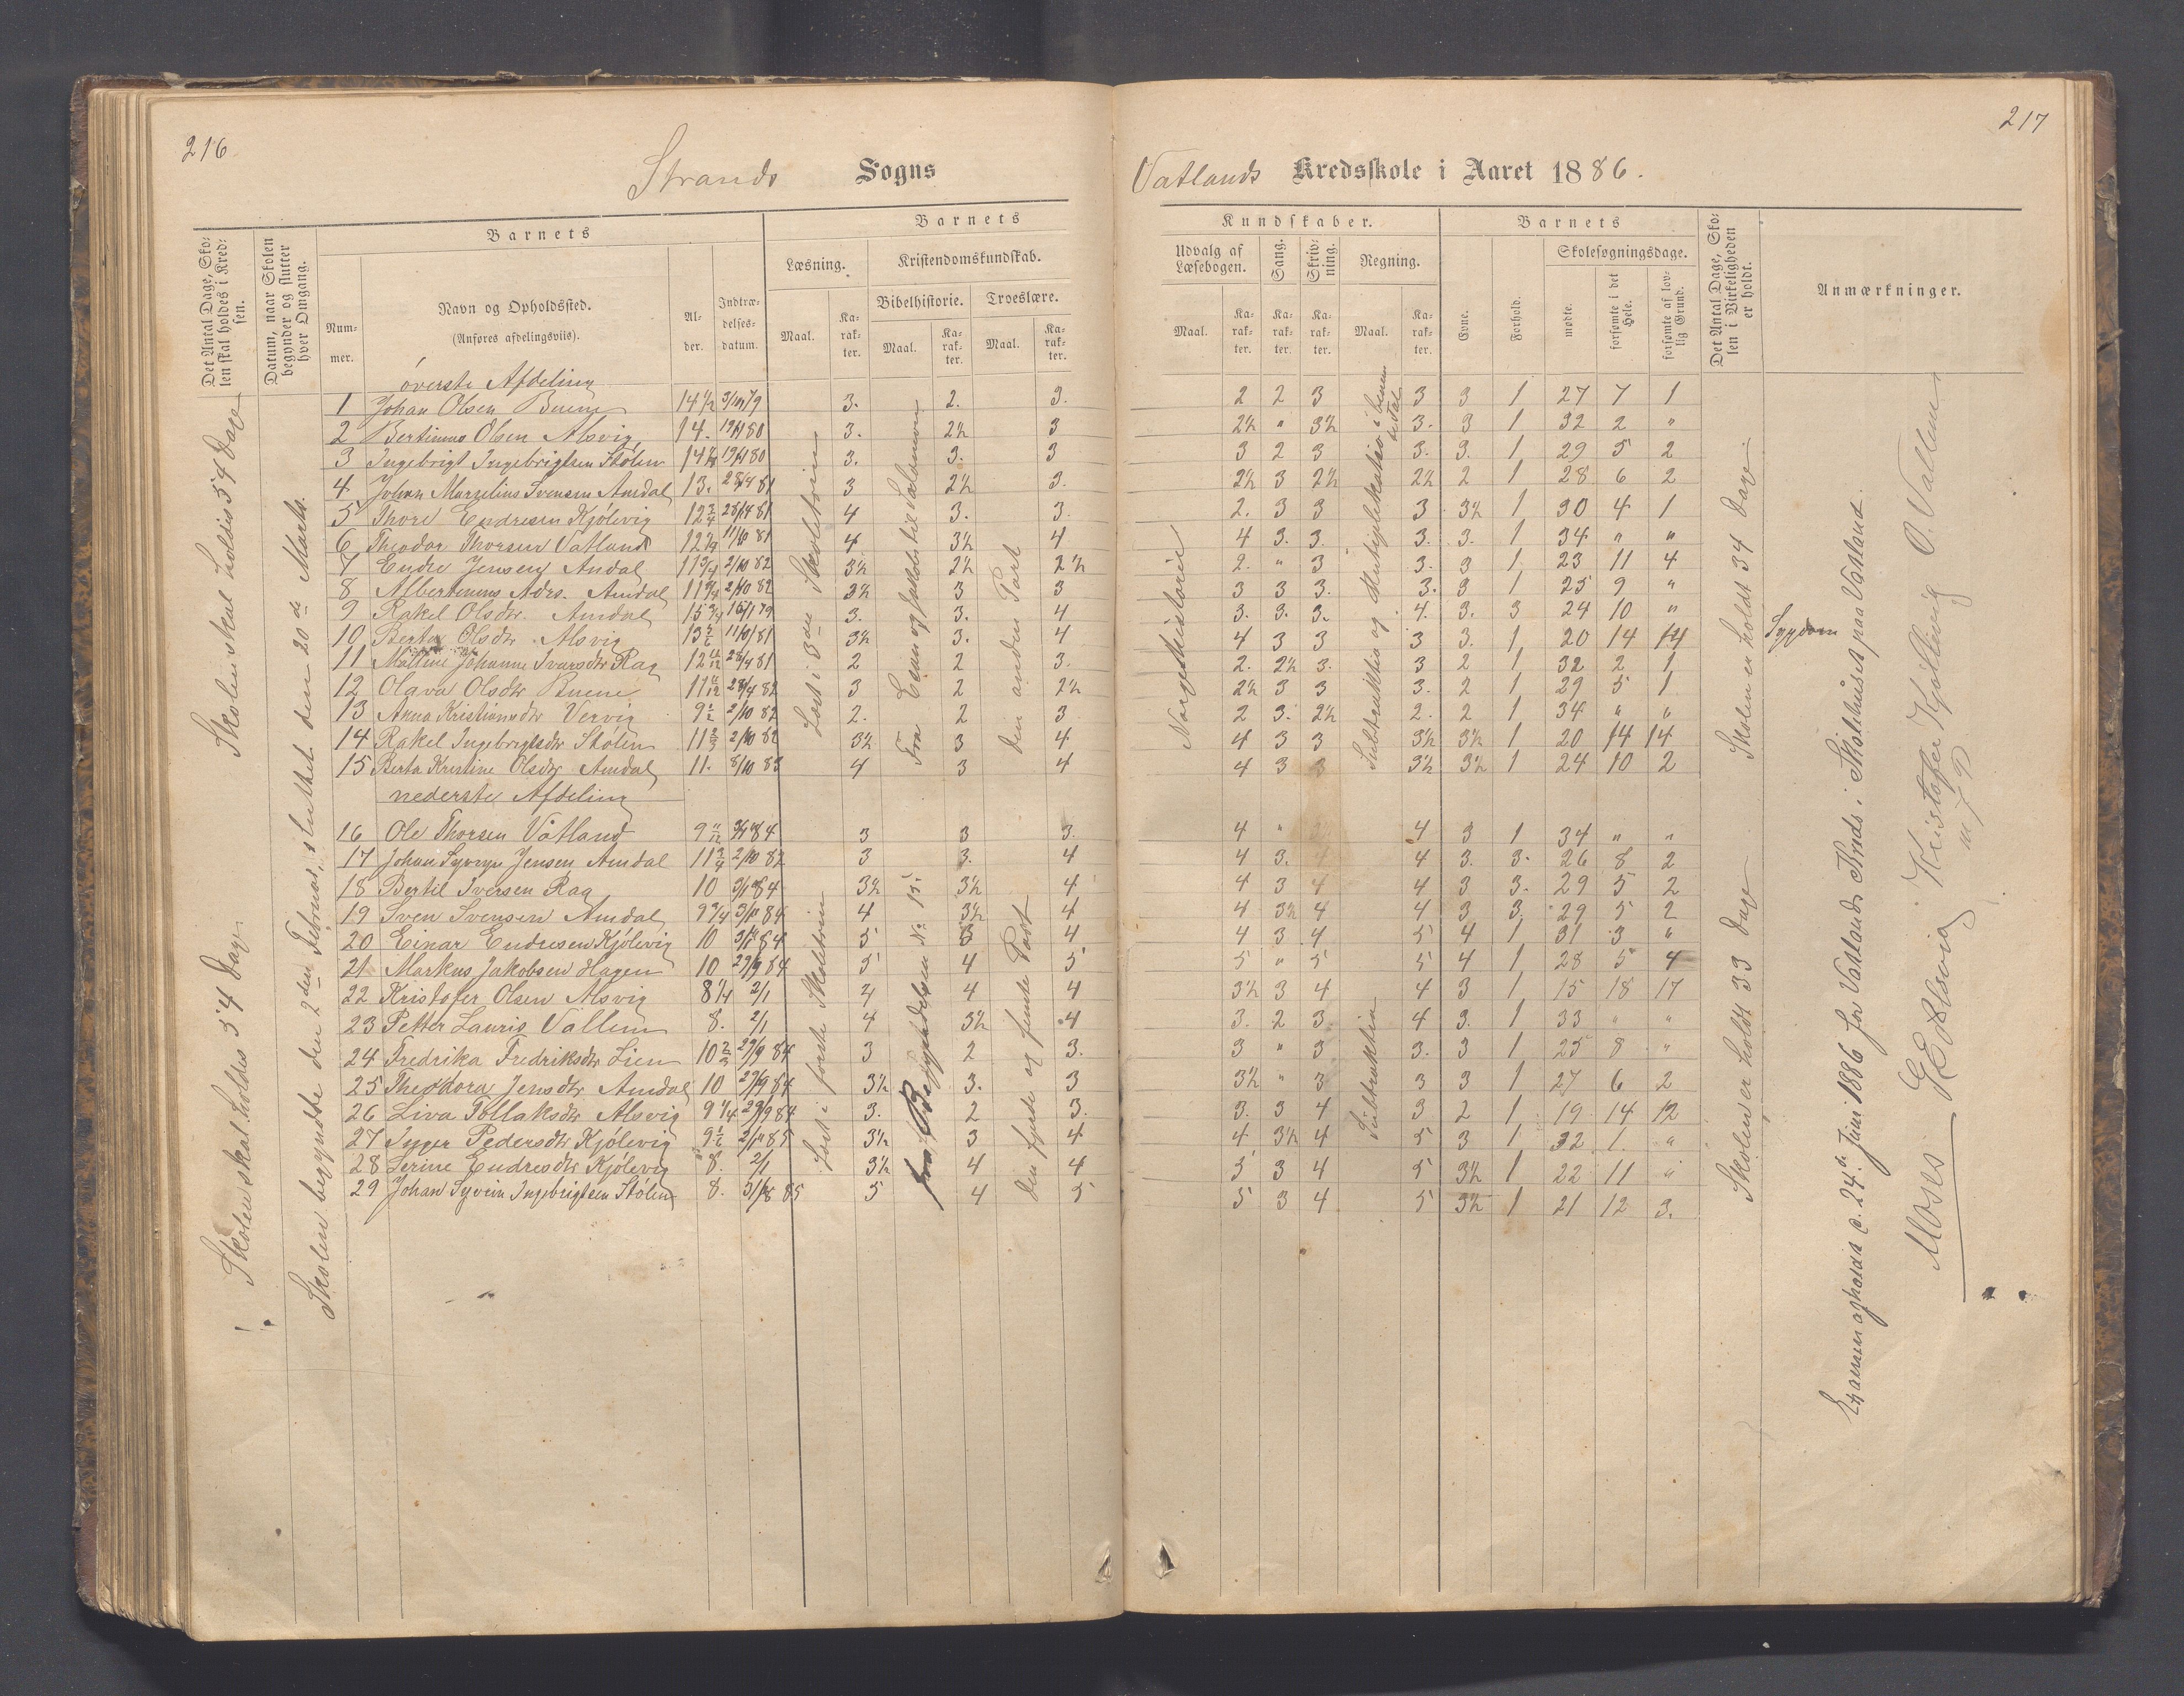 216
217
Strands Sogns
Vatlands Kredsskole i Aaret 1886.
Det Antal Dage, Skolen skal holdes i Kredsen.
Datum, naar Skolen begynder og slutter hver Omgang.
Barnets
Nummer.
Navn og Opholdssted.
(Anføres afdelingsviis).
Alder.
Indtrædelsesdatum.
Barnets
Læsning.
Kristendomskundskab.
Bibelhistorie.
Troeslære.
Maal.
Karakter.
Maal.
Karakter.
Maal.
Karakter.
Kundskaber.
Udvalg af Læsebogen.
Sang.
Skrivning.
Regning.
Maal.
Karakter.
Karakter.
Karakter.
Maal.
Karakter.
Barnets
Evne.
Forhold.
Skolesøgningsdage.
mødte.
forsømte i det Hele.
forsømte af lovlig Grund.
Det Antal Dage, Skolen i Virkeligheden er holdt.
Anmærkninger.
Skolen skal holdes 54 Dage
Skolen skal holdes 54 Dage
Skolen begyndte den 2den Februar, sluttet den 20de Marts.
øverste Afdeling
1 Johan Olsen Buene 14 1/2 3. 2. 3. 2 2 3 3 3 1 27 7 1
2 Bertinus Olsen Alsvig 14. 19/1 80 3. 2½ 3 2½ " 3½ 3. 3 1 32 2 "
3 Ingebrigt Ingebrigtsen Stølen 19/1 80 3. 3. 3 3 2 3 3. 3. 1 29 5 2
4 Johan Marselius Svensen Amdal 13. 28/4 81 3 2½ 3. 2½ 3 2½ 2½ 2 1 28 6 2
5 Thore Endresen Kjølevig 12 3/4 28/4 81 4 3. 3. 2. 3 3 3 3½ 1 30 4 1
6 Theodor Thorsen Vatland 4 3½ 4 4 3. 3. 3. 3. 1 34 " "
7 Endre Jensen Amdal 11 3/4 2/10 82 3½ 2½ 2½ 2. " 3 3. 3 1 23 11 4
8 Albertinius Adrs. Amdal 2/10 82 3½ 3 3 3 3 3. 3. 3 1 25 9 "
9 Rakel Olsdtr. Amdal 3. 3. 4 3. 3. 3. 4. 3. 3 24 10 "
10 Berta Olsdtr. Alsvig 3½ 3. 4 4 3 3 3 3. 1 20 14 14 Sygdom
11 Malline Johanne Ivarsdtr Rag 2 2 3. 2. 2½ 3. 3 2 1 32 2 1
12 Olava Olsdtr Buene 3 2 2½ 2½ 3 3 3. 2 1 29 5 1
13 Anna Kristiansdtr Vervig 9 1/2 2/10 82 2. 2 3 2 3. 2½ 2. 2 1 34 " "
14 Rakel Ingebrigtsdtr Stølen 11 2/3 2/10 82 3½ 3 4 4 3 3 3½ 3½ 1 20 14 14
15 Berta Kristine Olsdtr Amdal 11. 8/10 83 4 3 4 4 3 3 3½ 3½ 1 24 10 2
nederste Afdeling
16 Ole Thorsen Vatland 3 3 3. 4 " 4 3 1 34 " "
17 Johan Jensen Amdal 2/10 82 3 3. 4 4 3. 4 4 3. 3. 26 8 2
18 Bertil Iversen Rag 10 3½ 3½ 4 4 3 4 4 3 3. 29 5 2
19 Sven Svensen Amdal 4 3½ 4 4 3½ 4 4 3 3. 29 5 2
20 Einar Endresen Kjølevig 10 5 3 4 4 3 4 5 4 1 31 3 "
21 Markus Jakobsen Hagen 10 29/9 84 5 4 5 5 " 5 5 4 1 28 5 4
22 Kristofer Olsen Alsvig 8 1/4 2/1 4 4 4 3½ 3 4 4 3 1 15 18 17
23 Petter Lauris Vallem 8. 2/1 4 3½ 4 3. 2 3 4 3. 1 33 " "
24 Fredrika Fredriksdtr Lien 10 2/3 29/9 84 3 2 3. 3 " 3 3. 3 1 25 8 "
25 Theodora Jensdtr Amdal 10 29/9 84 3½ 3. 3 3½ " 3 3 3 1 27 6 2
26 Liva Tollaksdtr Alsvig 9 1/4 29/9 84 3. 2 3. 3. 3 4 3 2 1 19 14 12
27 Inger Pedersdtr Kjølevig 9 1/2 3½ 3 4 4 3½ 4 5 3 1 32 1. "
28 Serine Endresdtr Kjølevig 8. 2/1 3½ 4 4 5 3 4 5 3½ 1 22 11 "
29 Johan Syvein Ingebrigtsen Stølen 8. 5 4 5 5 3 4 5 3½ 1 21 12 3.
Læst i 3die Skoletrin
Fra Edan og Jakob til Salomon
den anden Part
Norges Historie
Subtraktion og Multiplikation i benævnte Tal
Læst i første Skoletrin
fra Begyndelsen No 15.
den fjerde og femte Part
Subtraktion
Skolen er holdt 34 Dage
Skolen er holdt 33 Dage
Examen afholdt d. 24de Juni 1886 for Vatlands Kreds i Skolehuset paa Vatland.
Moses
G E Alsvig
Kristofer Kjøllevig
O. Vallem
m. f. P.